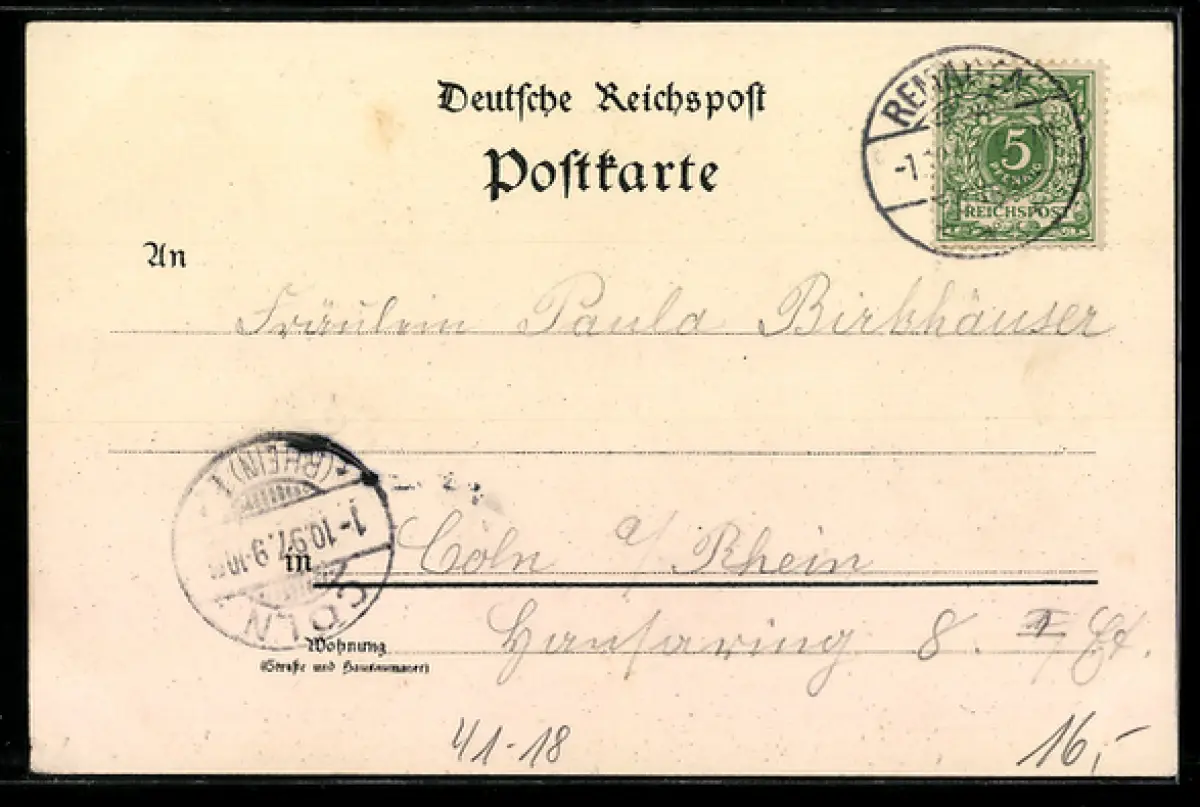 Deutsche Reichspost
REMAGEN
Postkarte
5
PFENNIG
REICHSPOST
An
Fräulein Paula Birkhäuser
(RHEIN) 1
1-10.97. 9-10
CÖLN
in Cöln a/Rhein
Wohnung
(Straße und Hausnummer)
Hansaring 8. I/Et.
41-18
16,-